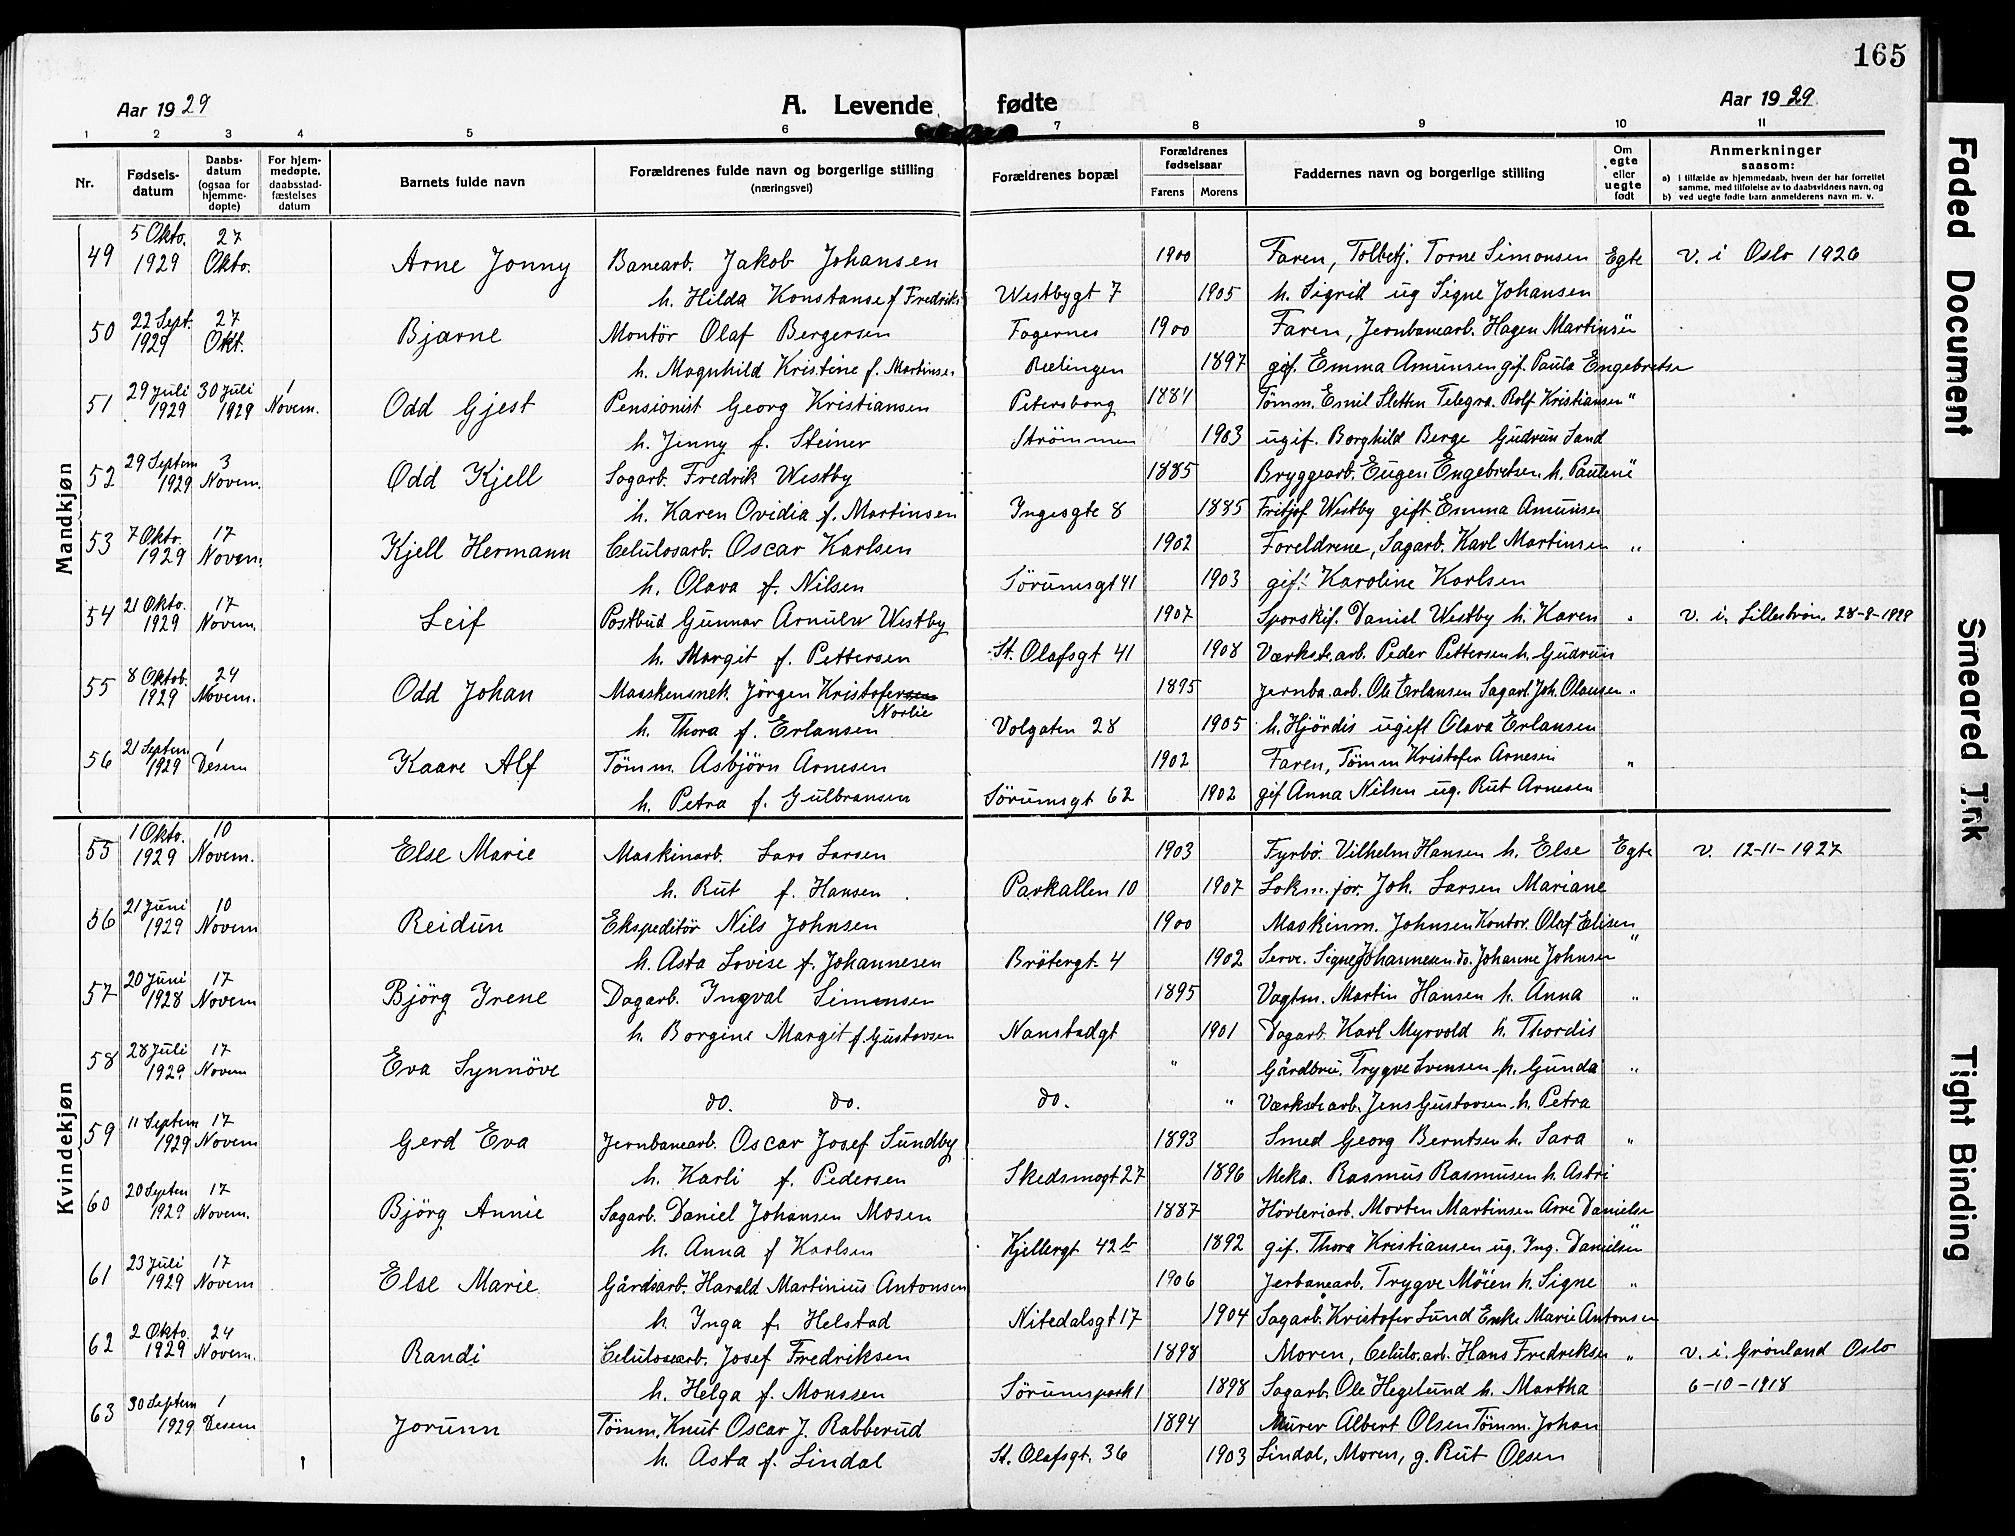 165
Aar 1929 A. Levende fødte Aar 1929.
1 2 3 4 5 6 7 8 9 10 11
Nr. Fødsels-datum Daabs-datum (ogsaa for hjemme-døpte) For hjem-medøpte, daabsstad-fæstelses datum Barnets fulde navn Forældrenes fulde navn og borgerlige stilling (næringsvei) Forældrenes bopæl Forældrenes fødselsaar Farens Morens Faddernes navn og borgerlige stilling Om egte eller uegte født Anmerkninger saasom: a) i tilfælde av hjemmedaab, hvem der har forrettet samme, med tilføielse av to daabsvidners navn, og b) ved uegte fødte barn anmelderens navn m. v.
Mandkjøn
49 5 Okto. 1929 27 Okto. Arne Jonny Banearb. Jakob Johansen 1900 Faren, Tolbetj. Torne Simonsen Egte v. i Oslo 1926
h. Hilda Konstanse f Fredriks Westbygt 7 1905 h. Sigrid ug Signe Johansen
50 22 Sept. 1929 27 Okt. Bjarne Montör Olaf Bergersen Fagernes 1900 Faren, Jernbanearb. Hagen Martinsen "
h. Magnhild Kristine f. Martinsen Rælingen 1897 gif. Emma Amunsen gif. Paula Engebretse
51 29 Juli 1929 30 Juli 1929 1 Novem. Odd Gjest Pensionist Georg Kristiansen Petersborg 1884 Tömm. Emil Sletten Telegra. Rolf Kristiansen "
h. Jenny f. Steiner Strömmen 1903 ugif. Borghild Berge Gudrun Sand
52 29 Septem 1929 3 Novem. Odd Kjell Sagarb. Fredrik Westby 1885 Bryggearb. Eugen Engebretsen h. Pauline "
h. Karen Ovidia f. Martinsen Ingesgte 8 1885 Fritjof Westby gift Emma Amunsen
53 7 Oktr. 1929 17 Novem. Kjell Hermann Celulosarb. Oscar Karlsen 1902 Foreldrene, Sagarb. Karl Martinsen "
h. Olava f. Nilsen Sörumsgt 41 1903 gif. Karoline Karlsen
54 21 Okto. 1929 17 Novem. Leif Postbud Gunnar Arnulw Westby 1907 Sporskif. Daniel Westby h. Karen " v. i. Lilleström. 28-8-1929
h. Margit f. Pettersen St. Olafsgt 41 1908 Værkst. arb. Peder Pettersen h. Gudrun
55 8 Oktob. 1929 24 Novem. Odd Johan Maskensnek. Jörgen Kristofersen 1895 Jernba. arb. Ole Erlansen Sagarb. Joh. Olausen "
Norlie
h. Thora f. Erlansen Volgaten 28 1905 h. Hjördis ugift Olava Erlansen
56 21 Septem 1929 1 Desem Kaare Alf Tömm. Asbjörn Arnesen 1902 Faren, Tömm Kristofer Arnesen "
h. Petra f. Gulbransen Sörumsgt 62 1902 gif Anna Nilsen ug. Rut Arnesen
Kvindekjøn
55 1 Okto. 1929 10 Novem. Else Marie Maskinarb. Lars Larsen 1903 Fyrbö. Vilhelm Hansen h. Else Egte v. 12-11-1927
h. Rut f. Hansen Parkallen 10 1907 Lokm. for. Joh. Larsen Mariane
56 21 Juni 1929 10 Novem Reidun Ekspeditör Nils Johnsen 1900 Maskinm. Johnsen Kontor. Olaf Elisen "
h. Asta Lovise f. Johannesen Brötergt. 4 1902 Serve. Signe Johannesen do. Johanne Johnsen
57 20 Juni 1928 17 Novem Björg Irene Dagarb. Ingval Simensen 1895 Vagtm. Martin Hansen h. Anna "
h. Borgine Margit f. Gustavsen Nanstadgt 1901 Dagarb. Karl Myrvold h. Thordis
58 28 Juli 1929 17 Novem Eva Synnöve " Gårdbru. Trygve Svensen h. Gunda "
do. do. do. " Værkstarb. Jens Gustavsen h. Petra
59 11 Septem 1929 17 Novem Gerd Eva Jernbanearb. Oscar Josef Sundby 1893 Smed Georg Berntsen h. Sara "
h. Karli f. Pedersen Skedsmogt 27 1896 Meka. Rasmus Rasmusen h. Astri
60 20 Septem 1929 17 Novem. Björg Annie Sagarb. Daniel Johansen Mosen 1887 Hövleriarb. Morten Martinsen Arne Danielse
h. Anna f Karlsen Kjellergt 42b 1892 gif. Thora Kristiansen ug. Ing. Danielsen "
61 23 Juli 1929 17 Novem Else Marie Gårdsarb. Harald Martinius Antonsen 1906 Jerbanearb. Trygve Möien h. Signe "
h. Inga f. Helstad Nitedalsgt 17 1904 Sagarb. Kristofer Lund Enke Marie Antonsen
62 2 Okto. 1929 24 Novem. Randi Celulosearb. Josef Fredriksen 1898 Moren, Celulo. arb. Hans Fredriksen " v. i. Grönland Oslo
h. Helga f. Monssen Sörumspark 1 1898 Sagarb. Ole Hegelund h. Martha 6-10-1918
63 30 Septem 1929 1 Desem Jorunn Tömm. Knut Oscar J. Rabberud 1894 Murer Albert Olsen Tömm. Johan
h. Asta f. Lindal St. Olafsgt. 36 1903 Lindal, Moren, g. Rut Olsen
Faded Document
Smeared Ink
Tight Binding